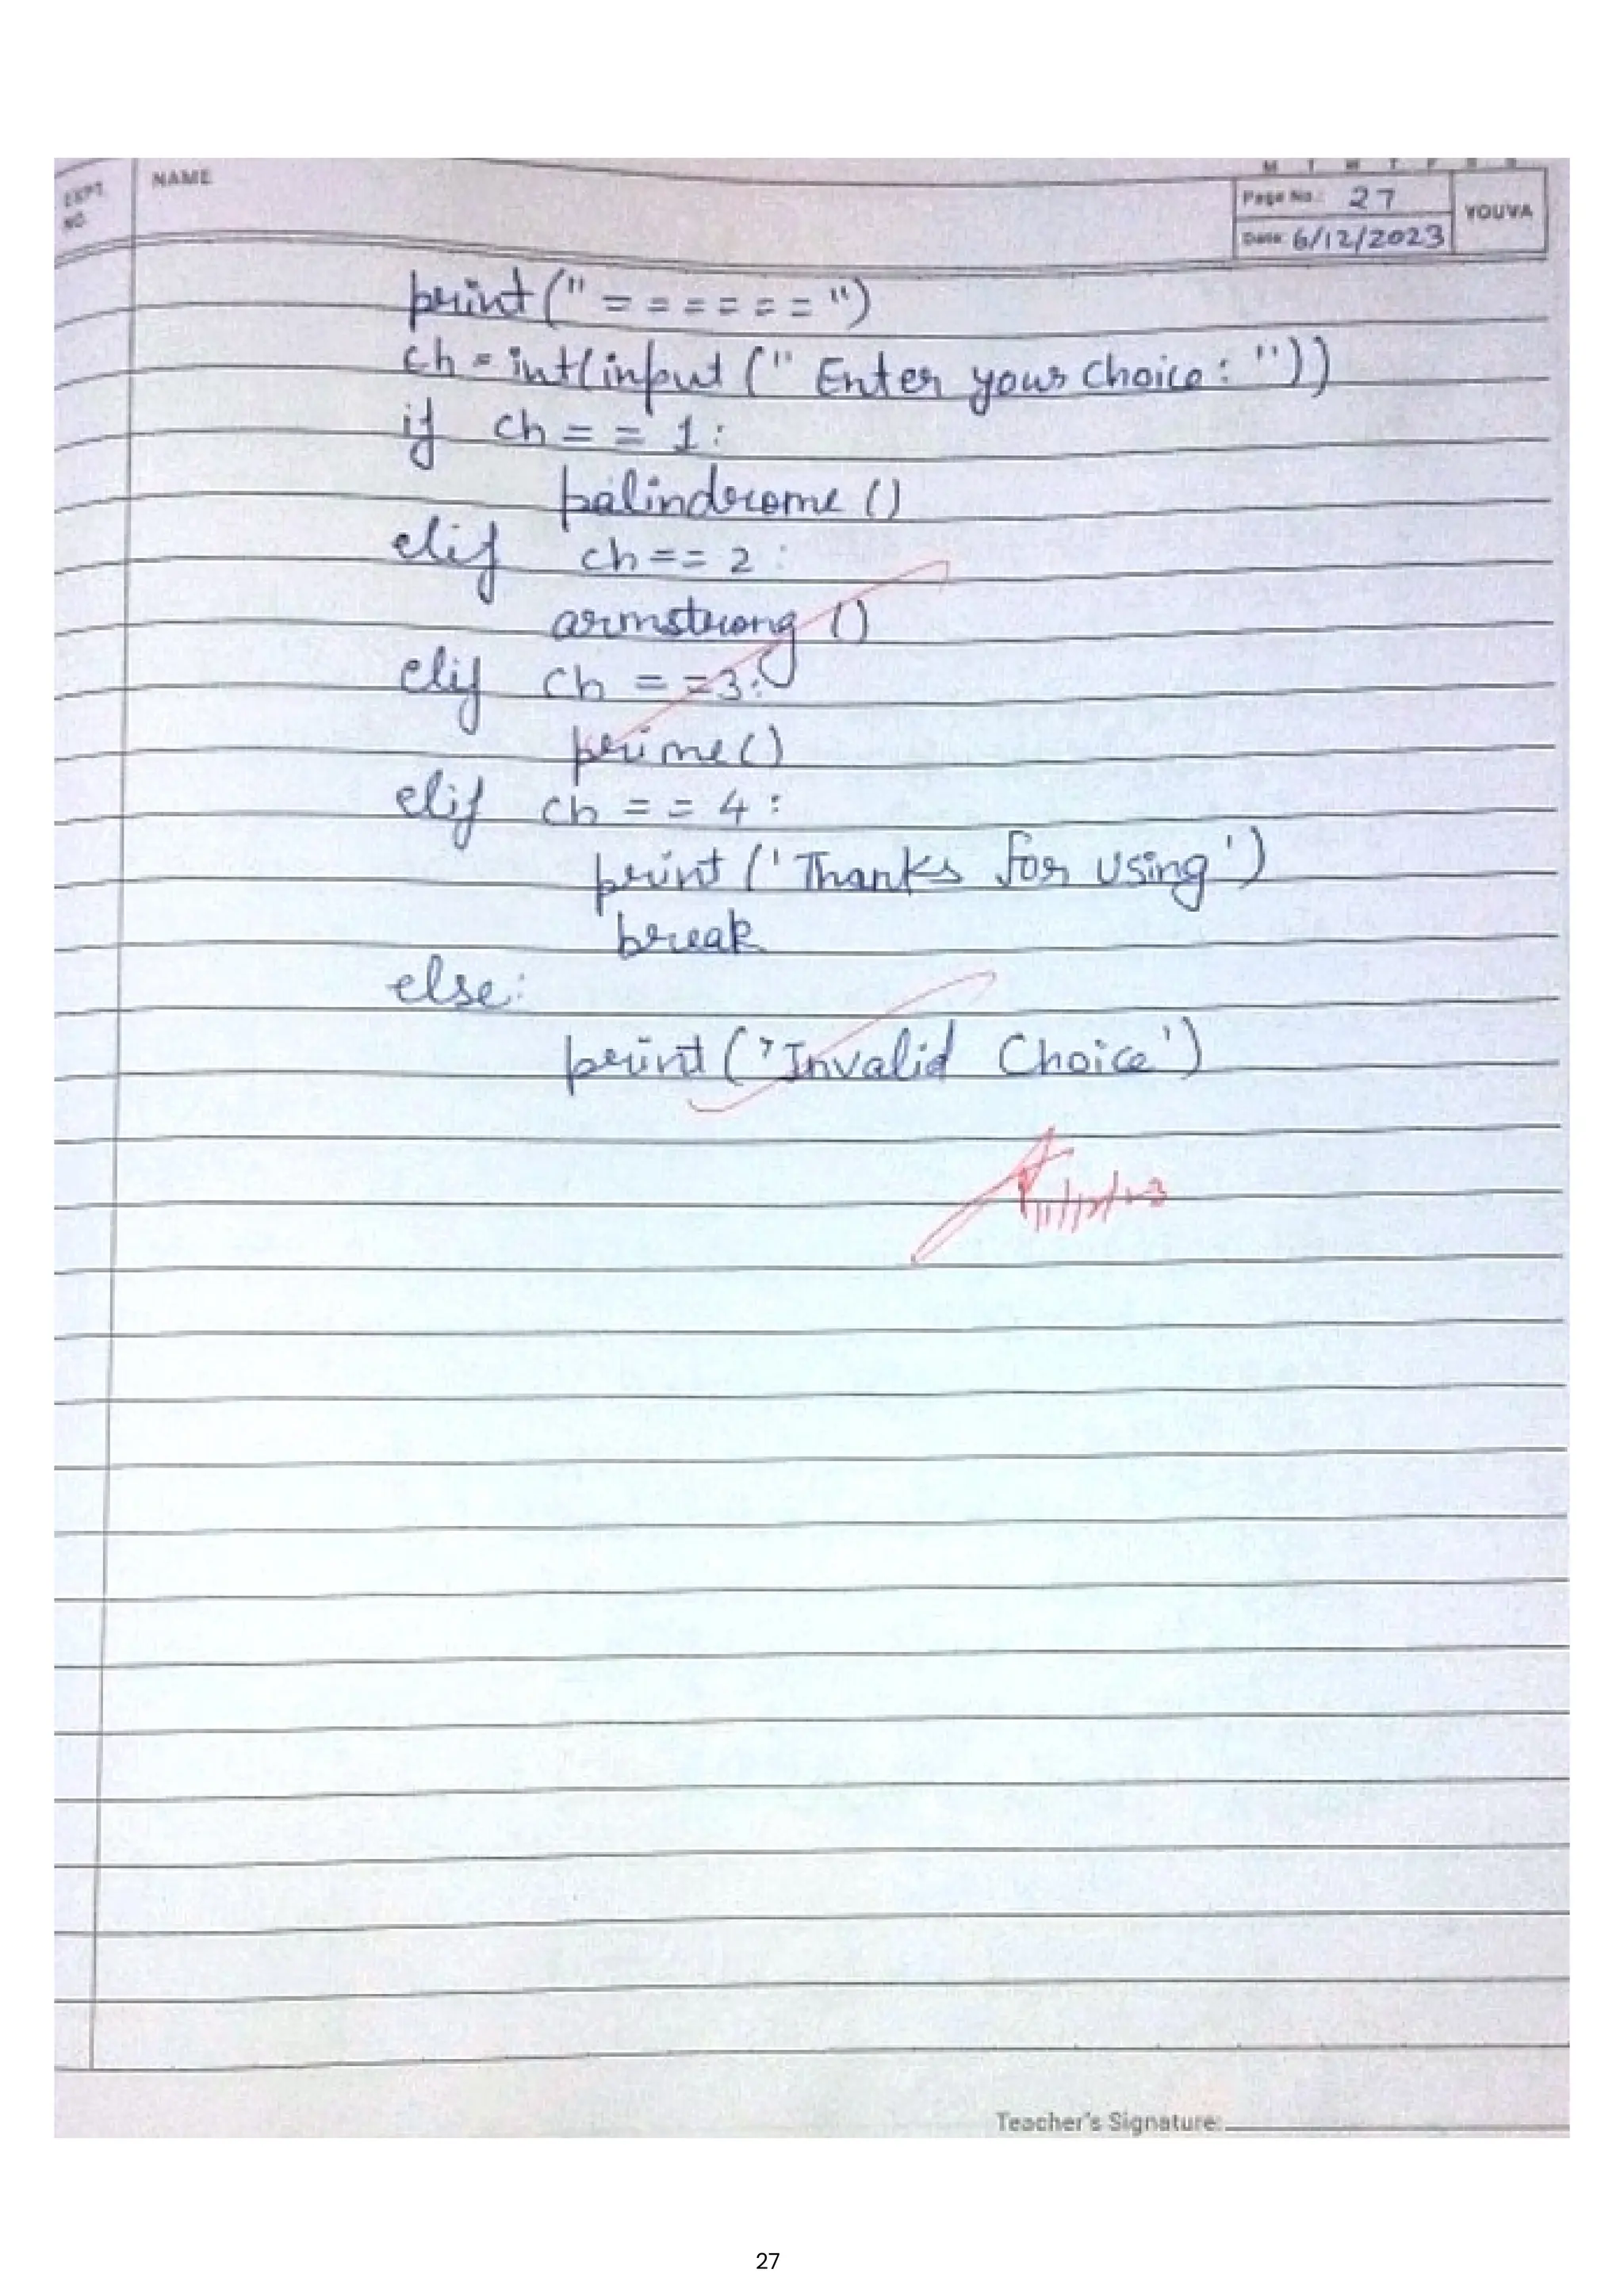 EXPT. NO. NAME
M T W T F S S
Page No.: 27
YOUVA
Date: 6/12/2023
print (" = = = = = = ")
ch = int(input (" Enter your choice : "))
if ch = = 1 :
palindrome ()
elif ch == 2 :
armstrong ()
elif ch = =3:
prime()
elif ch = = 4 :
print (' Thanks for using')
break
else:
print ('Invalid Choice')
11/12/23
Teacher's Signature:
27